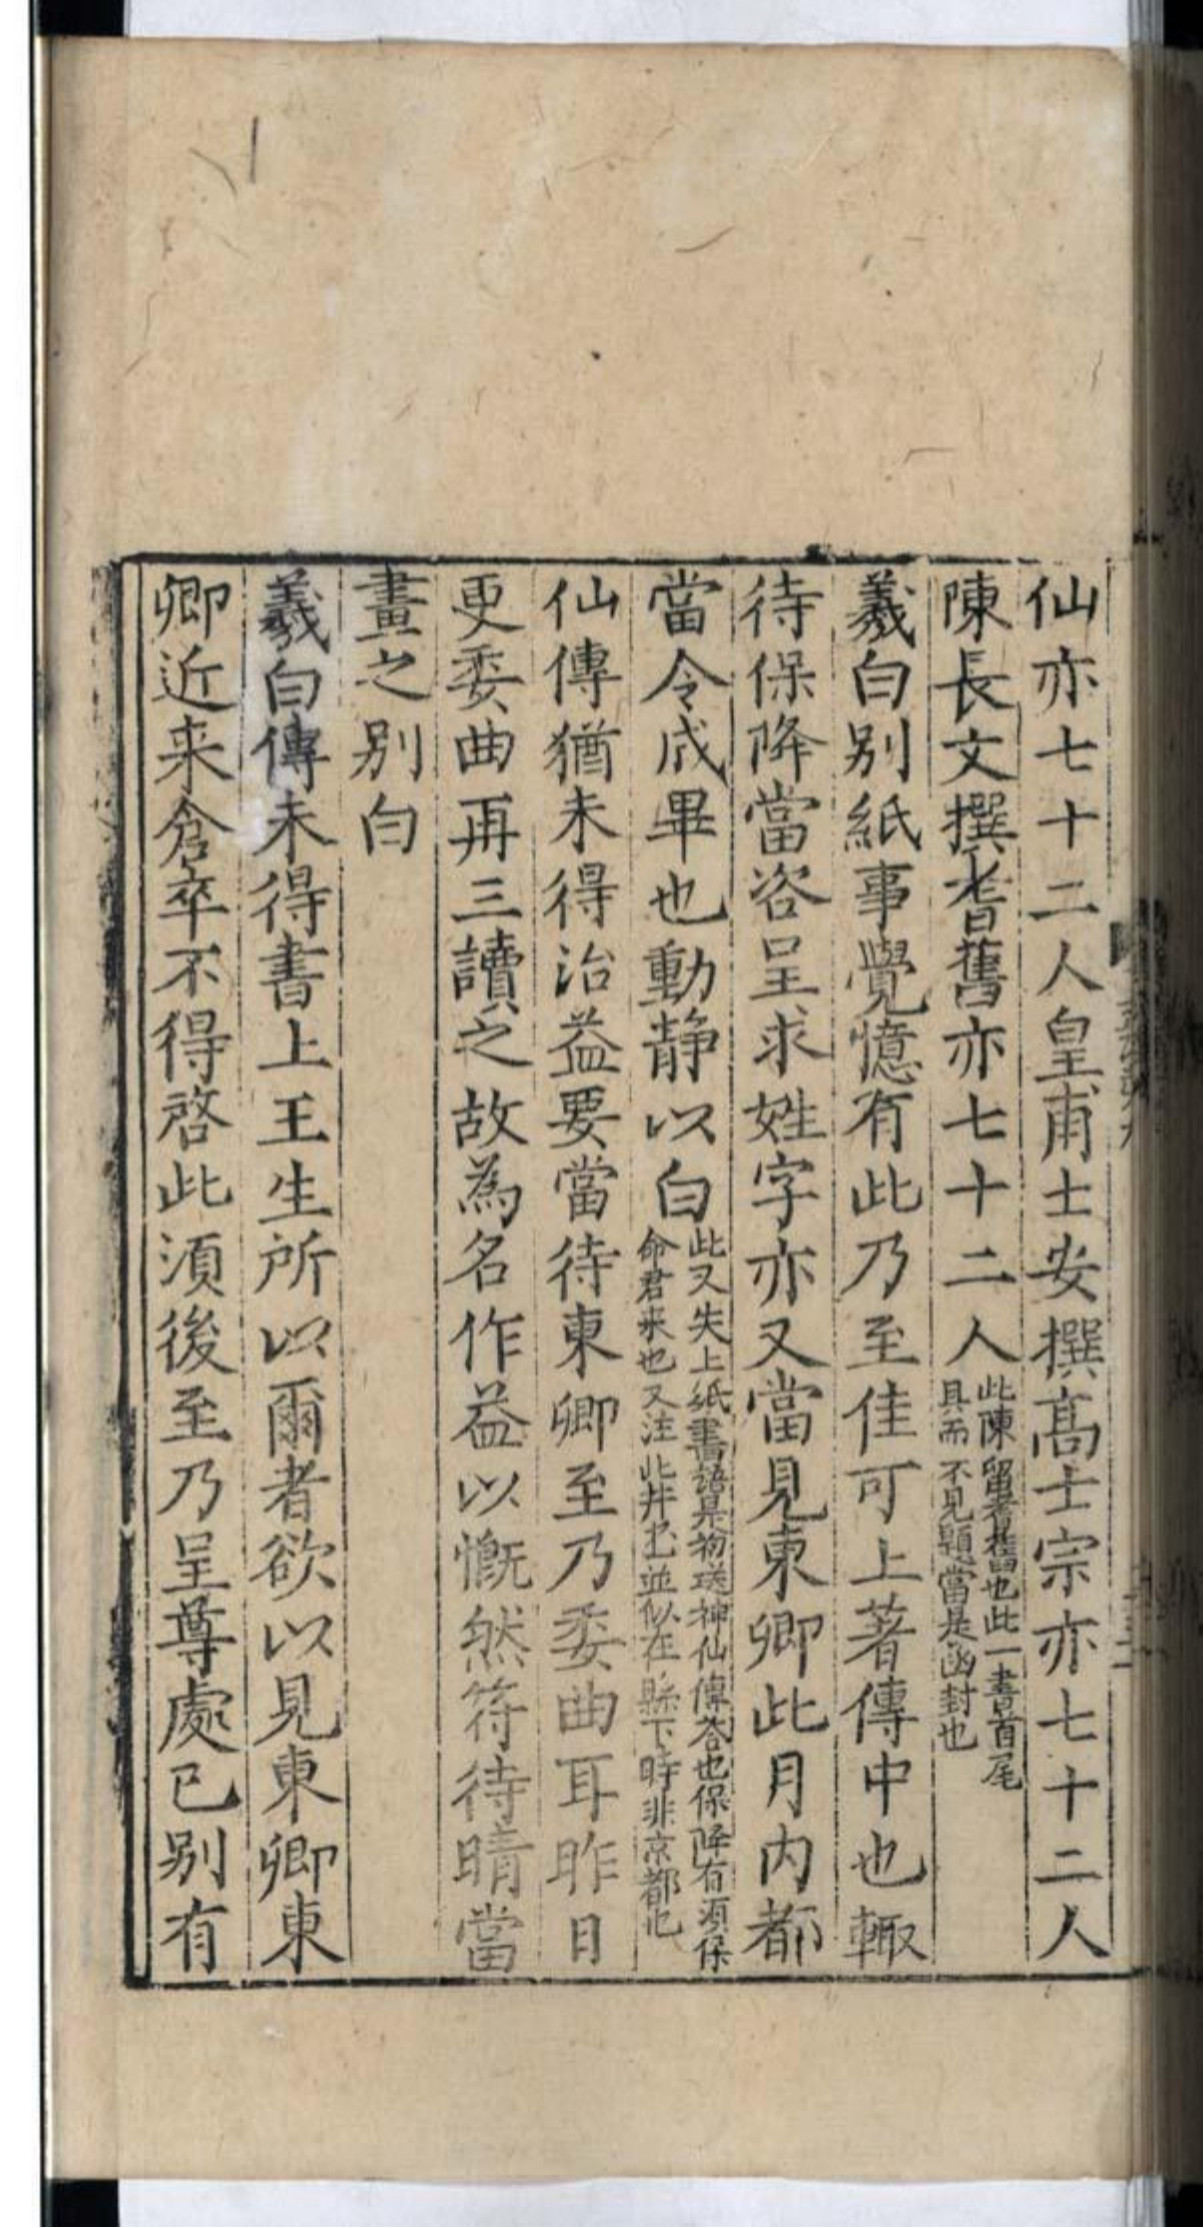 仙亦七十二人皇甫士安撰髙士宗亦七十二人
陳長文撰耆舊亦七十二人此陳留耆舊也此一書首尾具而不見題當是函封也
羲白别紙事覺憶有此乃至佳可上著傳中也輙
待保降當咨呈求姓字亦又當見東卿此月内都
當令成畢也動静以白此又失上紙書語是初送神仙傳荅也保降有須保命君来也又注此并書並似在縣下時非京都也
仙傳猶未得治益要當待東卿至乃委曲耳昨日
更委曲再三讀之故為名作益以慨然符待晴當
畫之别白
羲白傳未得書上王生所以爾者欲以見東卿東
卿近来倉卒不得啓此須後至乃呈尊處已别有